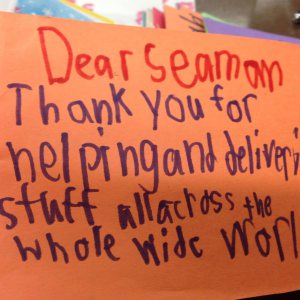 Dear seaman
Thank you for
helping and deliveri
stuff all across the
whole wide worl